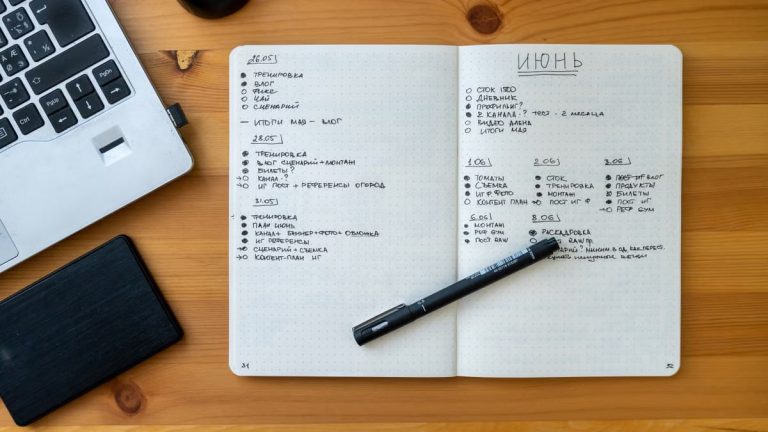 26.05
ТРЕНИРОВКА
ВЛОГ
ФИКС
ЧАЙ
СЦЕНАРИЙ
— ИТОГИ МАЯ — ВЛОГ
28.05
ТРЕНИРОВКА
ВЛОГ СЦЕНАРИЙ + МОНТАЖ
БИЛЕТЫ?
КАНАЛ - ?
ИГ ПОСТ + РЕФЕРЕНСЫ ОГОРОД
31.05
ТРЕНИРОВКА
ПЛАН ИЮНЬ
КАНАЛ + БАННЕР + ФОТО + ОБЛОЖКА
ИГ РЕФЕРЕНСЫ
СЦЕНАРИЙ + СЪЕМКА
КОНТЕНТ-ПЛАН ИГ
31
ИЮНЬ
СТОК
ДНЕВНИК
ПРОФИЛИГ?
2 КАНАЛА - ? ТЕСТ - 2 МЕСЯЦА
ВИДЕО АЛЕНА
ИТОГИ МАЯ
1.06
ТОМАТЫ
СЪЕМКА
ИГ Ф ФОТО
КОНТЕНТ ПЛАН
2.06
СТОК
ТРЕНИРОВКА
МОНТАЖ
ПОСТ ИГ Ф
3.06
ПОСТ ИГ ВЛОГ
ПРОДУКТЫ
БИЛЕТЫ
ПОСТ ИГ
РЕФ GYM
6.06
МОНТАЖ
РЕФ GYM
ПОСТ RAW
8.06
РАСКАДРОВКА
RAW ПР.